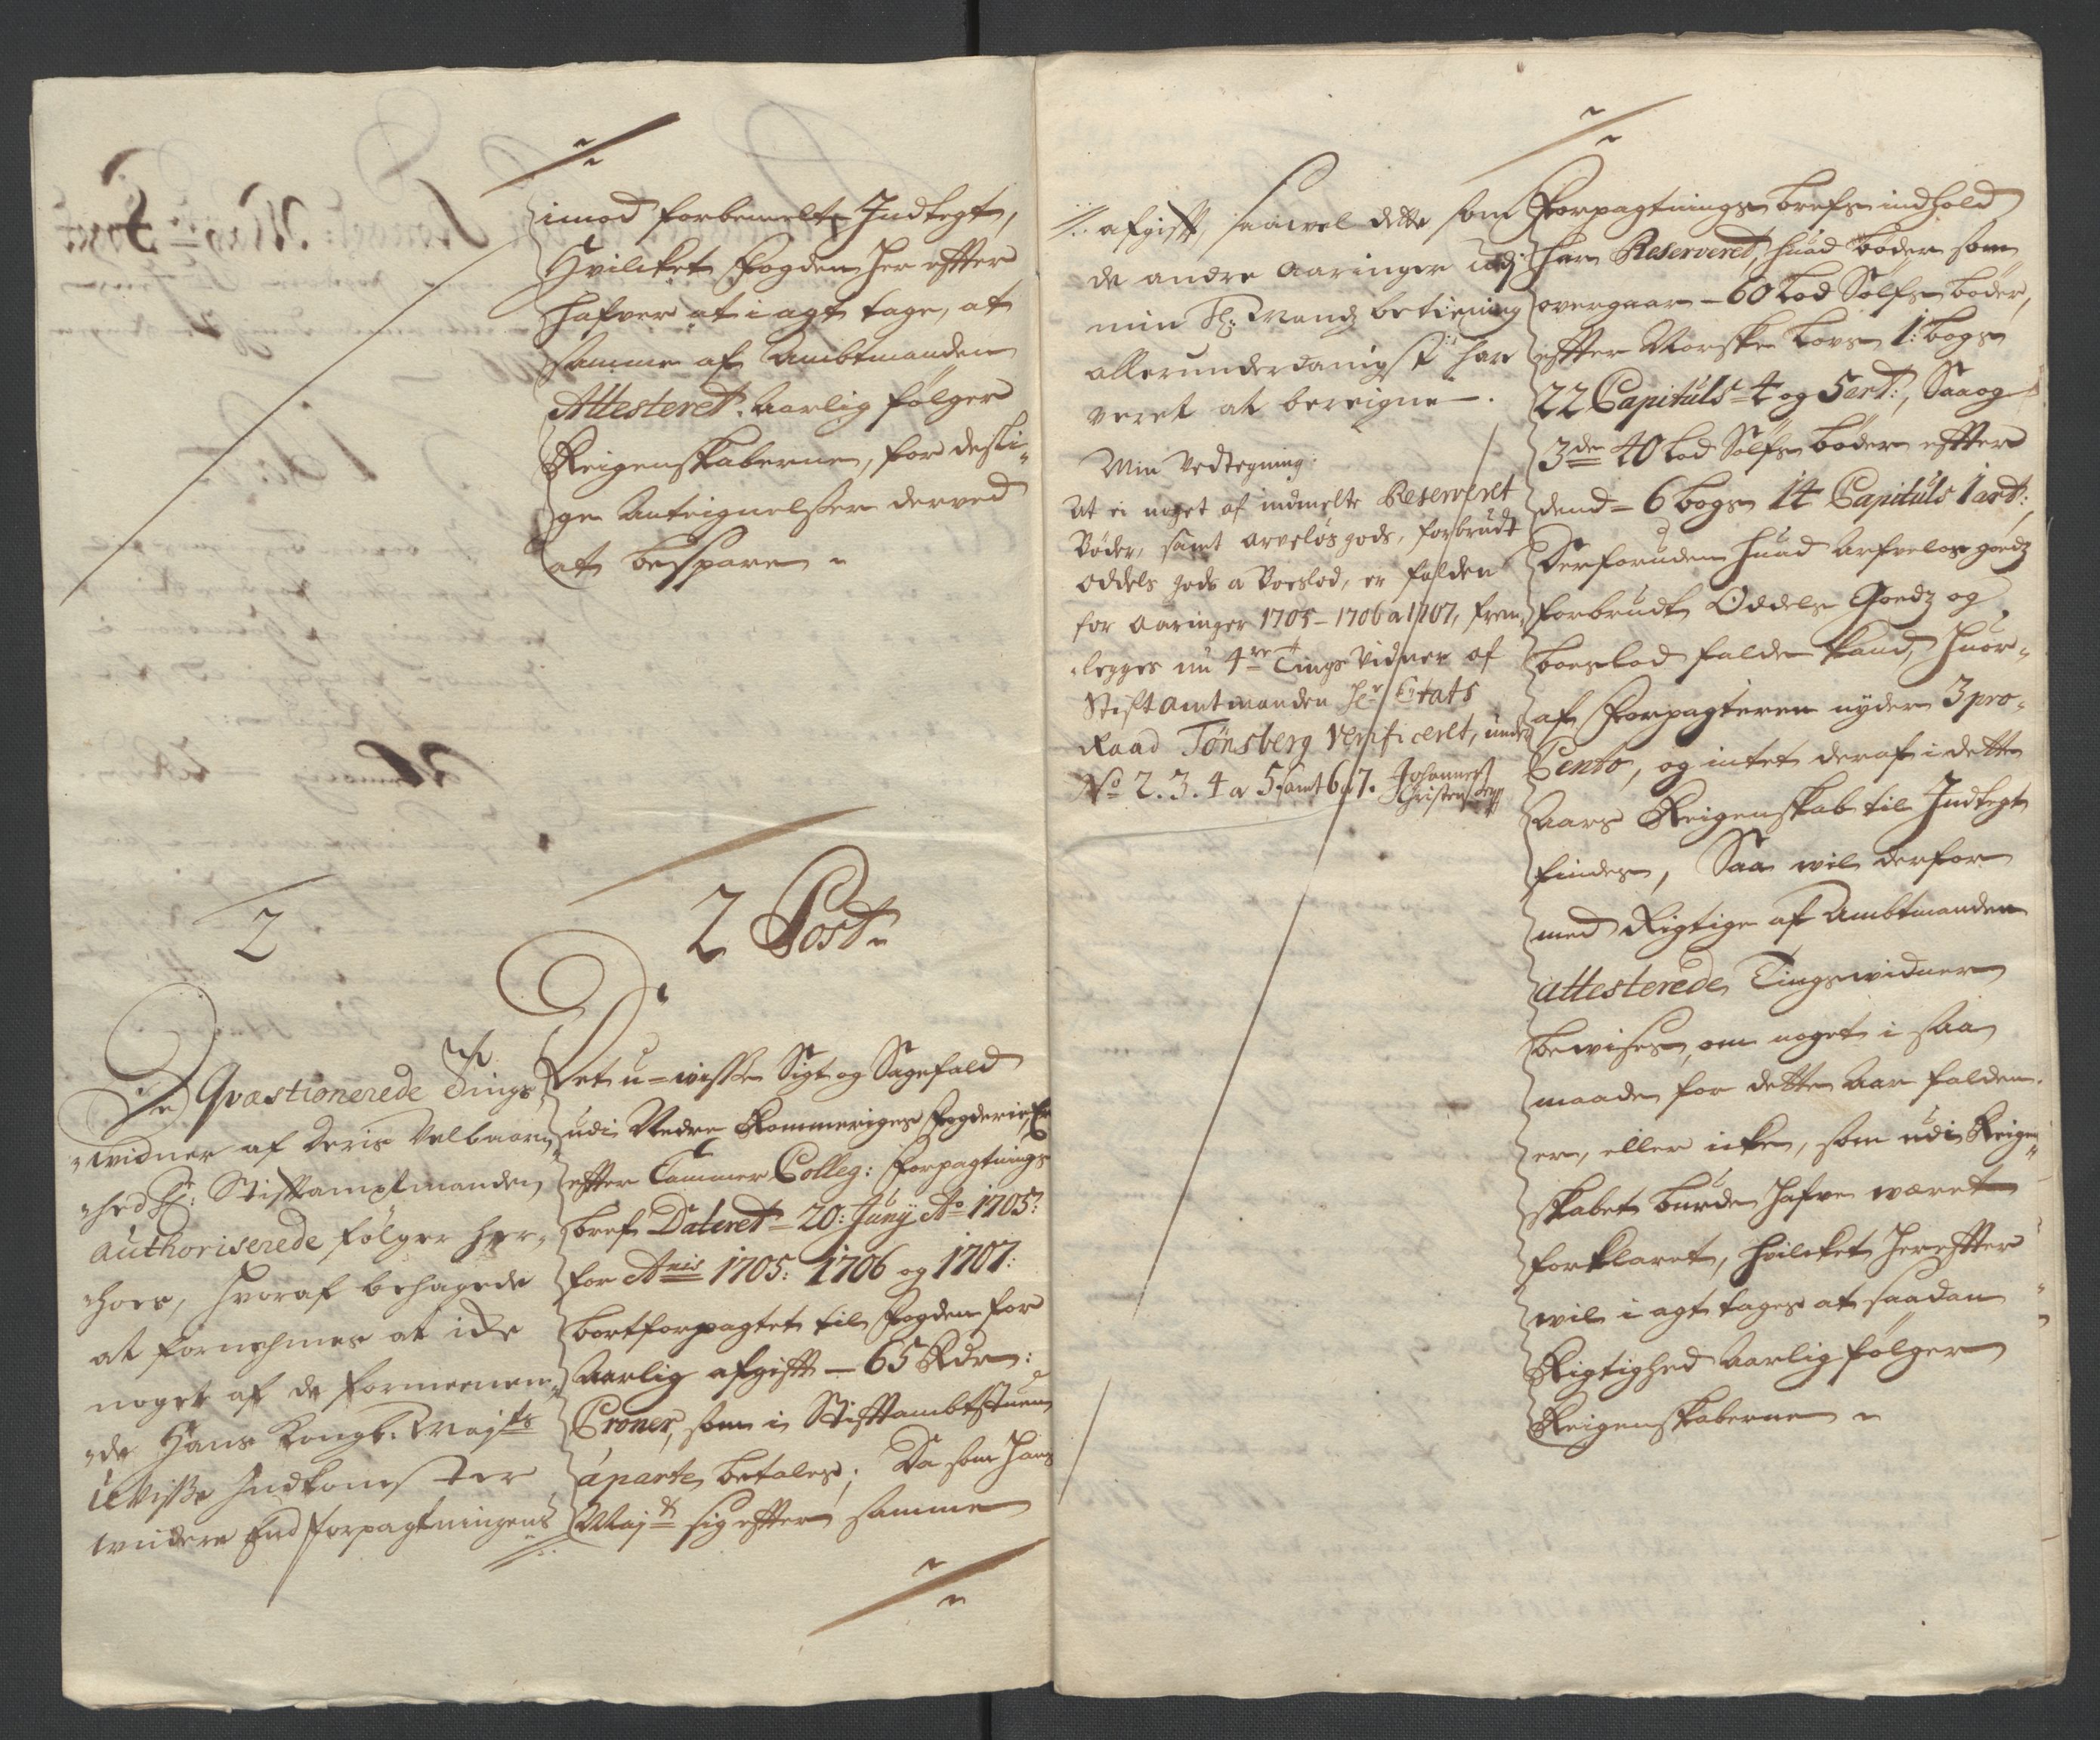 imod forbemelte Indtegt,
Hvilcket Fogden her effter
hafver at i agt tage, at
samme af Ambtmanden
Attesteret Aarlig følger
Reigenskaberne, for desli„
ge Anteignelsser derved
at bespare
2
2 Post
De Qvæstionerede Tings
„widner af Deris Velbaarn„
„hed Hr: Stiftamptmanden
authoriserede følger her„
„hoes, hvoraf behagede
at fornehmes at icke
noget af de formeenen„
„de Hans Kongl. Mayts
uvisse Indkomster
widere End forpagtningens
Det u=wisse Sigt og Sagefald
udi Nedre Rommeriges fogderie, Er
effter Cammer Colleg: Forpagtnings
bref Dateret 20: Junij Ao 1705:
for Anis 1705: 1706 og 1707:
bortforpagtet til fogden for
Aarlig afgifft - 65 Rdr:
Croner, som i Stifftambtstuen
áparte betales; Da som Hans
Mayt sig effter samme
afgifft, saavel dette som
de andre Aaringer udj
min Sl: Mands betiening
allerunderdanigst har
veret at bereigne.
Min Vedtegning.
At ei noget af indmelte Reserveret
Bøder, samt arveløs gods, forbrudt
oddels gods a Boeslod, er falden
for Aaringer 1705 - 1706 a 1707, frem„
„legges nu 4re Tings Vidner af
Stiftamtmanden Hr Etats
Raad Tønsberg Verificeret, under
No 2. 3. 4 a 5 samt 6 a 7. Johannes
Christensen
Forpagtnings brefs indhold
har Reserveret, huad bøder som
overgaar - 60 Lod Sølfs bøder,
effter Norske Lovs 1: bogs
22 Capituls 4 og 5 art:, Saa og
3de 40 Lod Sølfs bøder effter
dend 6 bogs 14 Capituls 1 art:
Derforuden huad Arfveløs goedz
forbrudt Oddels Goedz og
boeslod falde kand, huor„
af Forpagteren nyder 3 pro„
Cento, og intet deraf i dette
Aars Reigenskab til Indtegt
findes, Saa wil derfor
med Rigtige af Ambtmanden
attesterede Tingswidner
bewises, om noget i saa
maade for dette Aar falden
er, eller icke, som udi Reigen„
skabet burde hafve weret
forklaret, hvilcket hereffter
wil i agt tages at saadan
Rigtighed Aarlig følger
Reigenskaberne